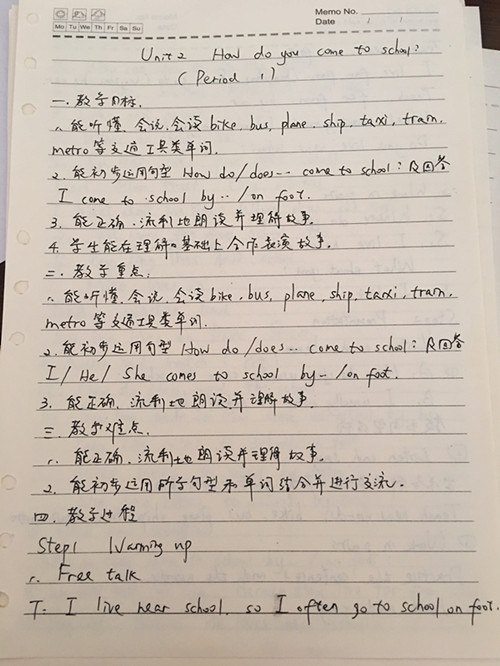 Memo No.
Date / /
Mo Tu We Th Fr Sa Su
Unit 2 How do you come to school?
( Period 1)
一. 教学目标.
1. 能听懂, 会说, 会读 bike, bus, plane, ship, taxi, tram,
metro 等交通工具类单词.
2. 能初步运用句型 How do/does... come to school? 及回答
I come to school by.. /on foot.
3. 能正确、流利地朗读并理解故事.
4. 学生能在理解的基础上合作表演故事.
二. 教学重点.
1. 能听懂, 会说, 会读 bike, bus, plane, ship, taxi, tram,
metro 等交通工具类单词.
2. 能初步运用句型 How do /does... come to school? 及回答
I / He / She comes to school by.. /on foot.
3. 能正确、流利地朗读并理解故事.
三. 教学难点.
1. 能正确、流利地朗读并理解故事.
2. 能初步运用所学句型和单词结合并进行交流.
四. 教学过程
Step1 Warming up
1. Free talk
T: I live near school, so I often go to school on foot.